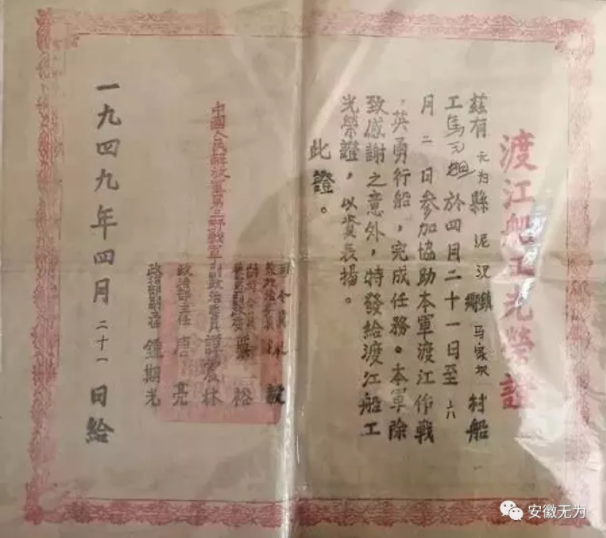 渡江船工光榮證
茲有 无为縣 泥汊鎮 村船
工馬元 於四月二十一日至 六
月二日參加協助本軍渡江作戰
，英勇行船，完成任務。本軍除
致感謝之意外，特發給渡江船工
光榮證，以資表揚。
此證。
中國人民解放軍第三野戰軍
司令員 毅
裕
副政治委員 譚震林
政治部主任 唐亮
政治部副主任 鍾期光
一九四九年四月二十一日給
安徽无为